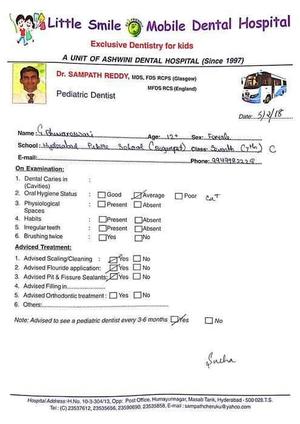 Little Smile Mobile Dental Hospital
Exclusive Dentistry for kids
A UNIT OF ASHWINI DENTAL HOSPITAL (Since 1997)
Dr. SAMPATH REDDY, MDS, FDS RCPS (Glasgow)
MFDS RCS (England)
Pediatric Dentist
Date: 5/2/18
Name: Age: 12+ Sex: Female
School: Hyderabad Public School (Begumpet) Class: Seventh (7th) C
E-mail: Phone:
On Examination:
1. Dental Caries in :
(Cavities)
2. Oral Hygiene Status : Good Average Poor
3. Physiological : Present Absent
Spaces
4. Habits : Present Absent
5. Irregular teeth : Present Absent
6. Brushing twice : Yes No
Adviced Treatment:
1. Advised Scaling/Cleaning : Yes No
2. Advised Flouride application: Yes No
3. Advised Pit & Fissure Sealants: Yes No
4. Advised Filling in
5. Advised Orthodontic treatment : Yes No
6. Others:
Note: Advised to see a pediatric dentist every 3-6 months Yes No
Hospital Address: H.No. 10-3-304/13, Opp: Post Office, Humayunnagar, Masab Tank, Hyderabad - 500 028 T.S.
Tel: (C) 23537612, 23535656, 23590690, 23535858, E-mail : sampathcheruku@yahoo.com